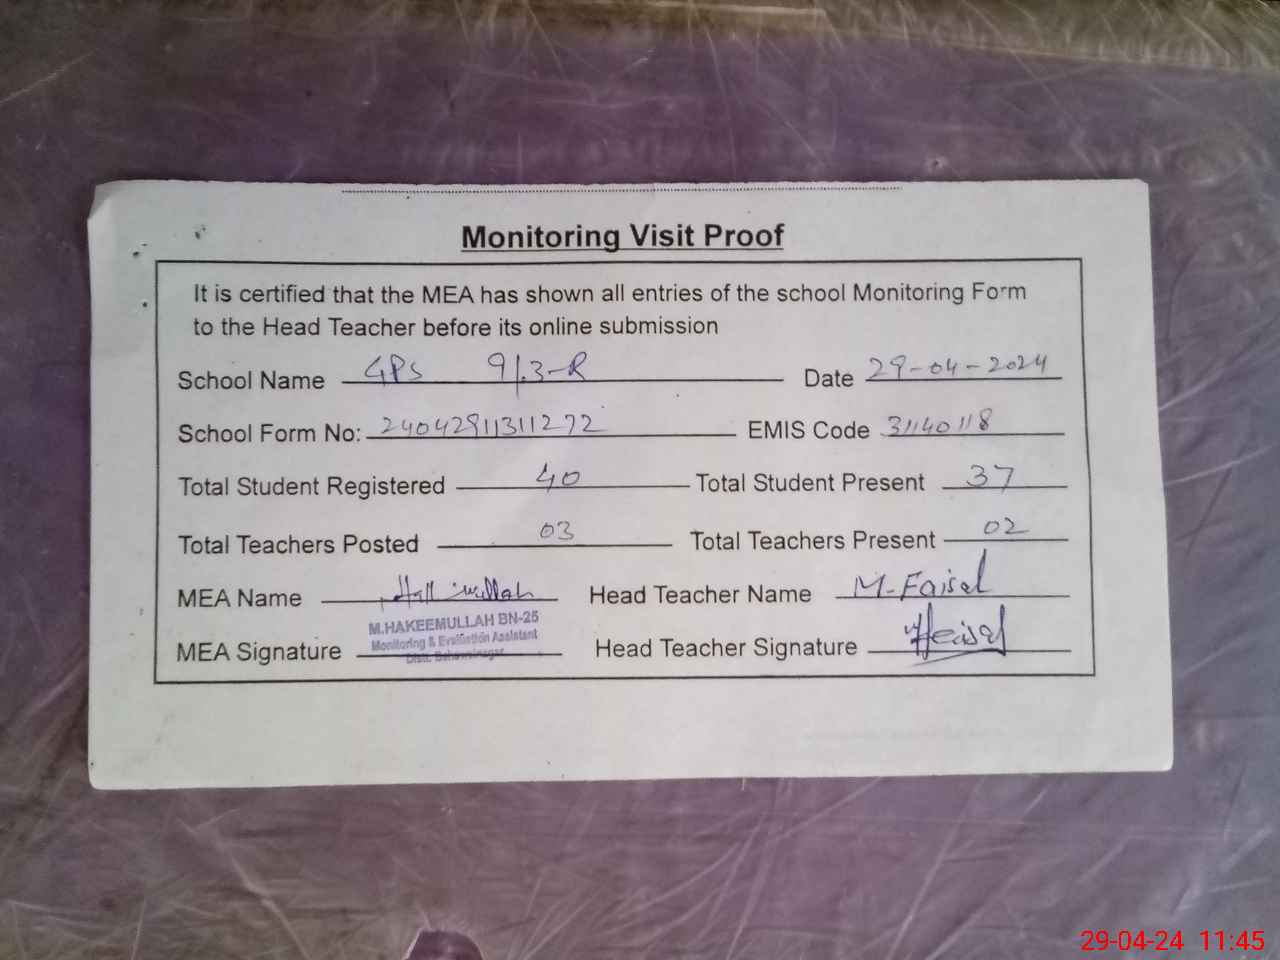 Monitoring Visit Proof
It is certified that the MEA has shown all entries of the school Monitoring Form
to the Head Teacher before its online submission
School Name GPS 9/3-R Date 29-04-2024
School Form No: 24042911311272 EMIS Code 31140118
Total Student Registered 40 Total Student Present 37
Total Teachers Posted 03 Total Teachers Present 02
MEA Name Head Teacher Name M-Faisal
M.HAKEEMULLAH BN-25
Monitoring & Evaluation Assistant
Distt. Bahawalnagar
MEA Signature Head Teacher Signature
29-04-24 11:45